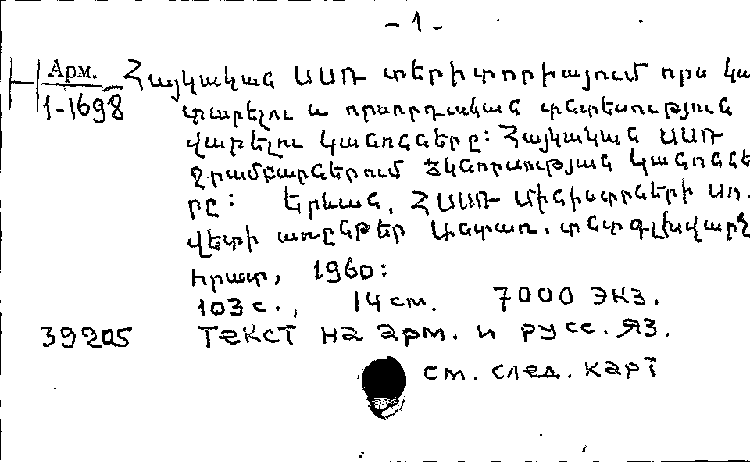 - 1 -
Арм.
1-1698
Հայկական ՍՍՌ տերիտորիայում որս կա
տարելու և որսորդական տնտեսություն
վարելու կանոնները: Հայկական ՍՍՌ
ջրամբարներում ձկնորսության կանոննե
րը: Երևան, ՀՍՍՌ Մինիստրների Սո.
վետի առընթեր Անտառ. տնտ գլխվարչ
հրատ, 1960:
103 с., 14 см. 7000 экз.
39205 Текст на арм. и русс. яз.
см. след. карт